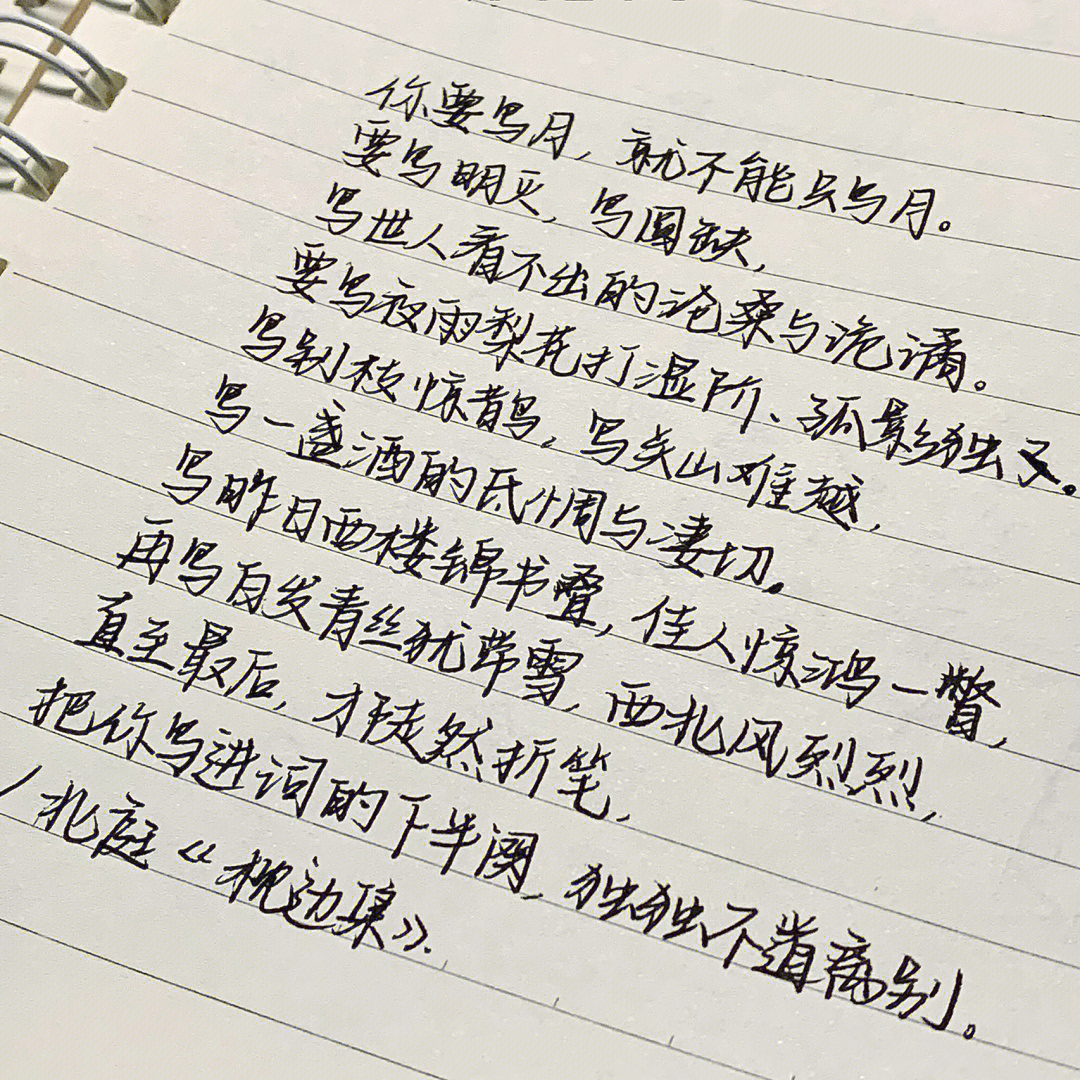 你要写月，就不能只写月。
要写明灭，写圆缺，
写世人看不出的沧桑与诡谲。
要写夜雨梨花打湿阶、孤影独叉。
写别枝惊鹊，写关山难越，
写一盏酒的低惆与凄切。
写昨日西楼锦书叠，佳人惊鸿一瞥，
再写白发青丝犹带雪，西北风烈烈，
直至最后，才徒然折笔，
把你写进词的下半阕，独独不道离别。
/北庭《枕边集》.